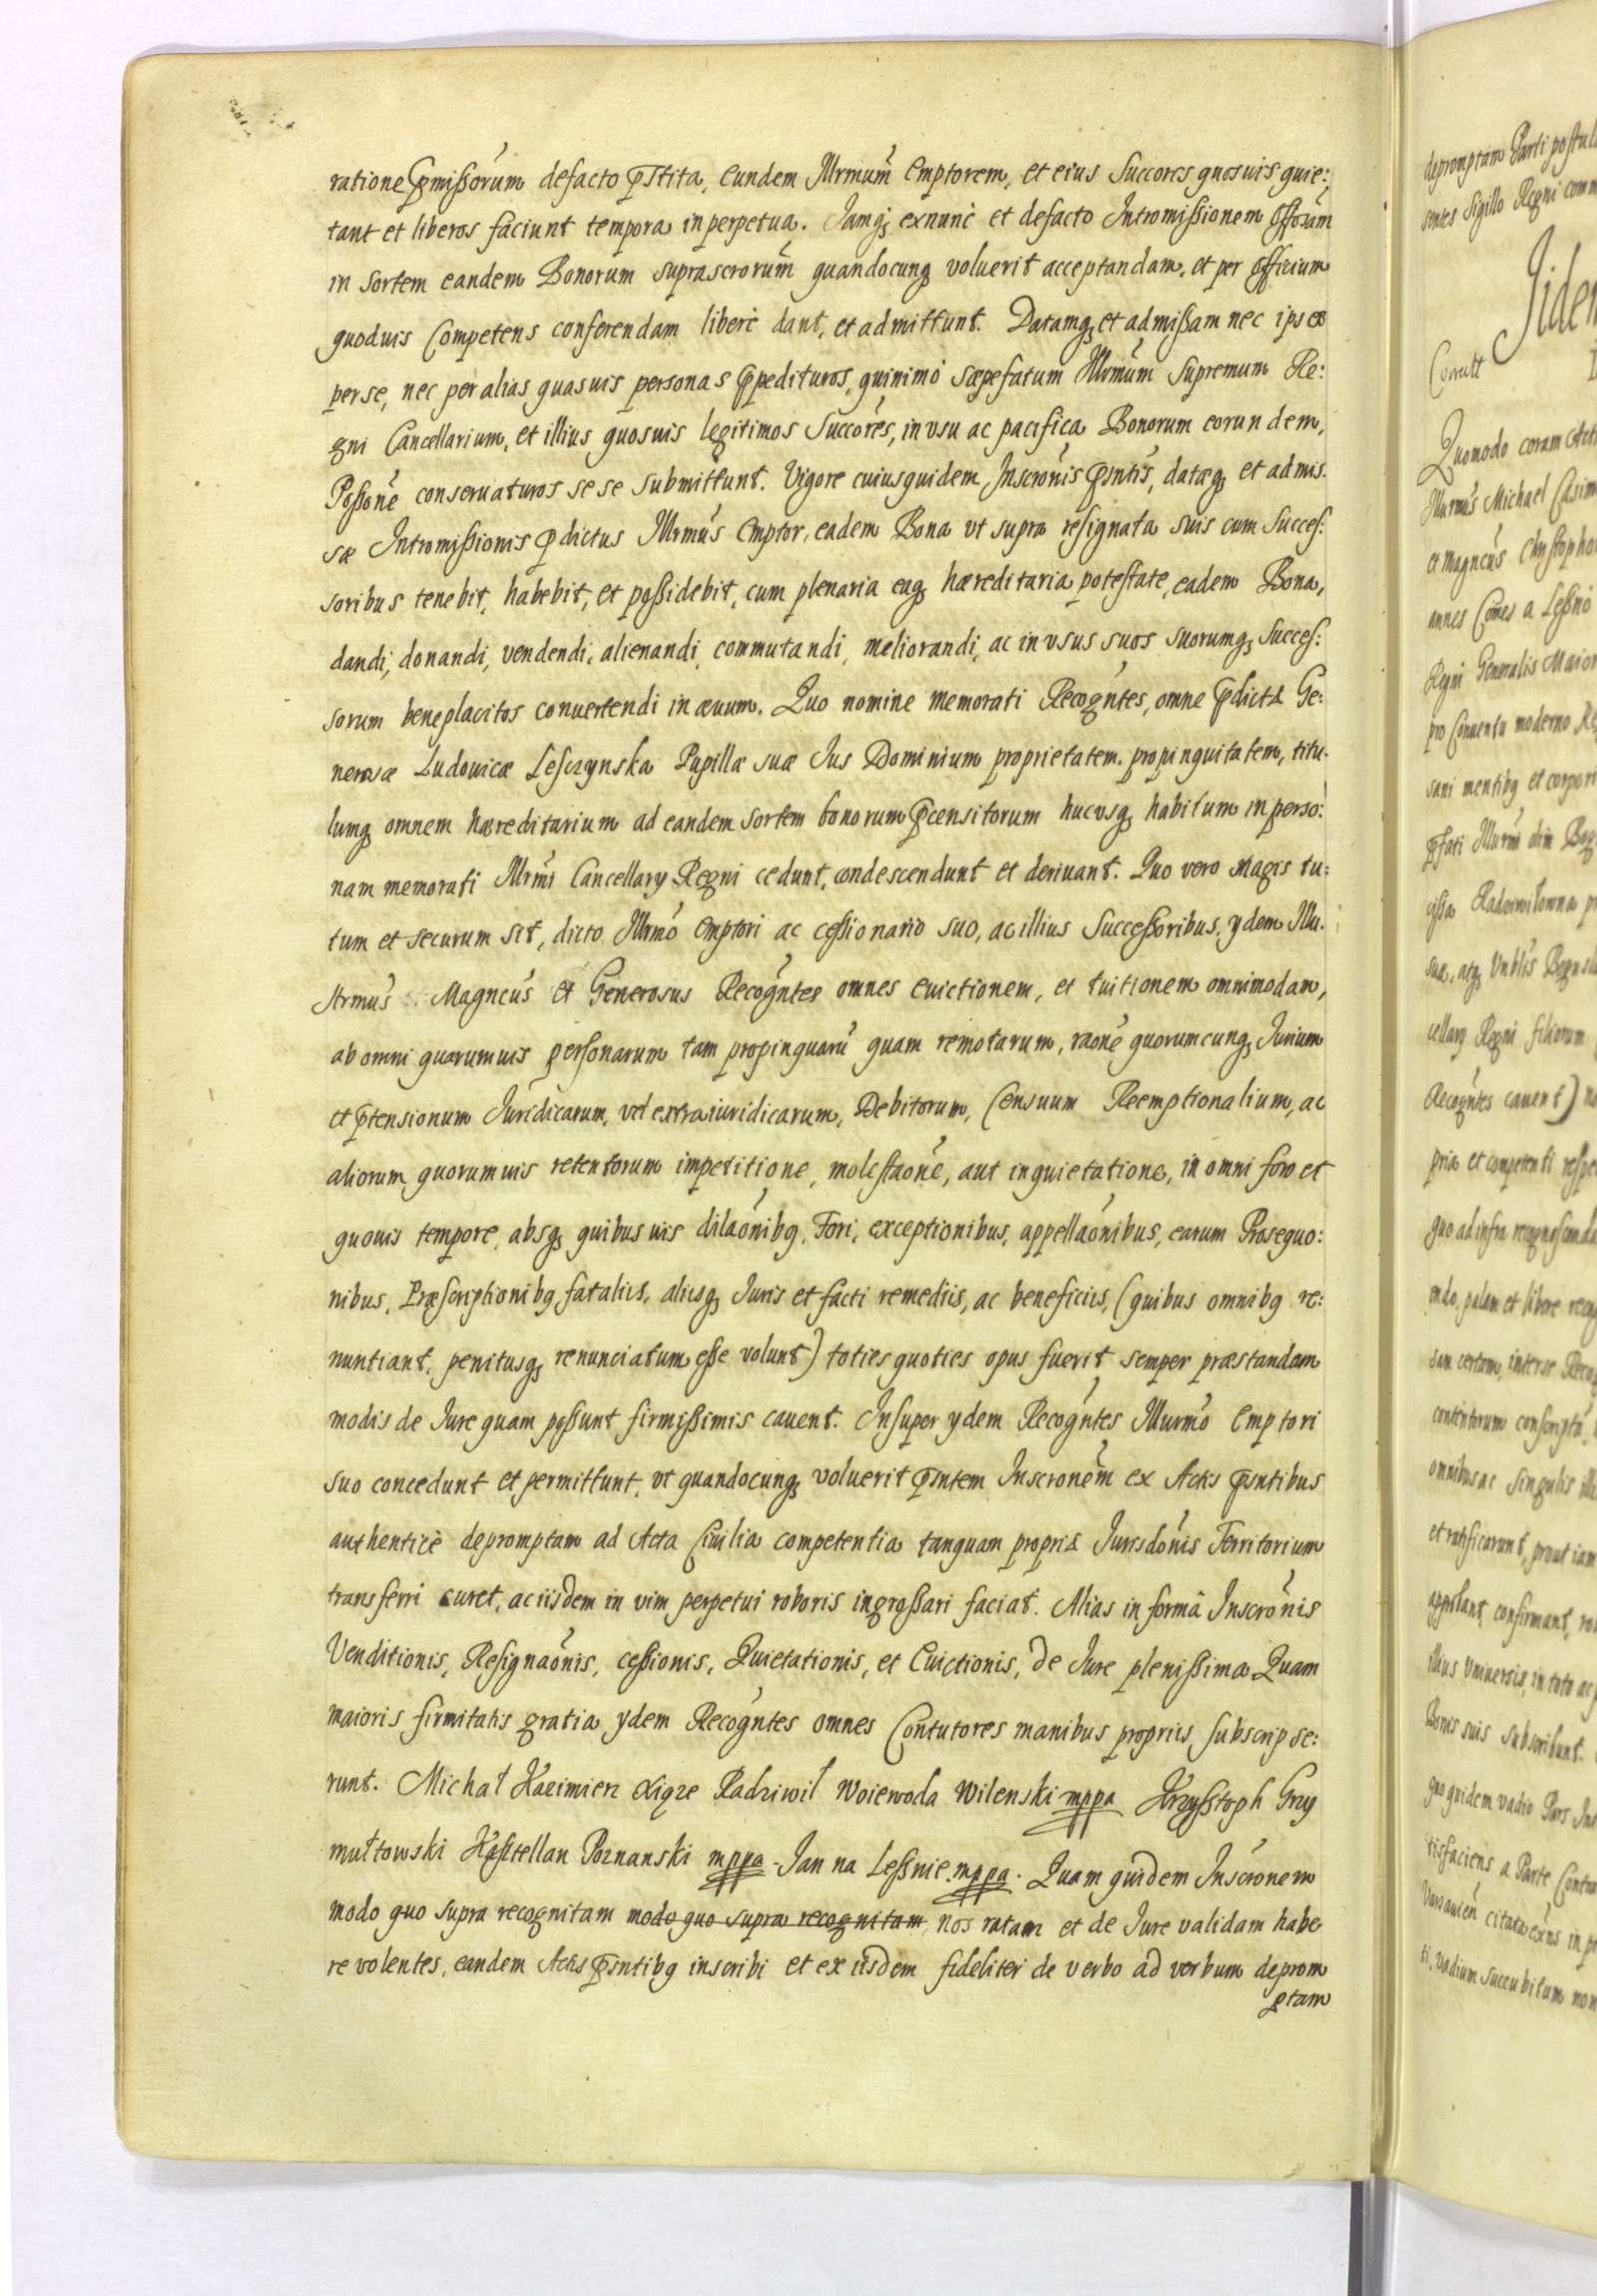 ratione p̄missorum defacto p̄stita, eundem Illrmum̃ Emptorem, et eius Succores quosuis quie:
tant et liberos faciunt tempora in perpetua. Iamq; exnunc et defacto Intromissionem
in sortem eandem Bonorum suprascrorum̃ quandocunq; voluerit acceptandam, et per Officium
quoduis Competens conferendam liberè dant, et admittunt. Datamq; et admissam nec ipsos
per se, nec per alias quasuis personas p̄pedituros, quinimò sæpefatum Illrmum̃ Supremum Re:
gni Cancellarium, et illius quosuis legitimos Succores, in vsu ac pacifica Bonorum eorundem,
Possone conseruaturos sese submittunt. Vigore cuiusquidem Inscronis p̄sntis, datæq; et admis.
sæ Intromissionis p̄dictus Illrmus Emptor, eadem Bona vt supra resignata suis cum Succes:
soribus tenebit, habebit, et possidebit, cum plenaria eaq; hæreditaria potestate, eadem Bona,
dandi, donandi, vendendi, alienandi, commutandi, meliorandi, ac in vsus suos suorumq; Succes:
sorum beneplacitos conuertendi in æuum. Quo nomine memorati Recogntes, omne p̄dictæ Ge:
nerosæ Ludouicæ Lesczynska Pupillæ suæ Ius Dominium proprietatem, propinquitatem, titu.
lumq; omnem hæreditarium ad eandem sortem bonorum p̄censitorum hucusq; habitum in perso:
nam memorati Illrmi Cancellary Regni cedunt, condescendunt et deriuant. Quo vero magis tu:
tum et securum sit, dicto Illrmo Emptori ac cessionario suo, ac illius Successoribus, ydem Illu.
strmus Magncus et Generosus Recogntes omnes euictionem, et tuitionem omnimodam,
ab omni quarumuis personarum tam propinquaru quam remotarum, raone quorumcunq; Iurium
et p̄tensionum Iuridicarum, vel extraiuridicarum, Debitorum, Censuum Reemptionalium, ac
aliorum quorumuis retentorum impetitione, molestaone, aut inquietatione, in omni foro et
quouis tempore, absq; quibusuis dilaonibq, Fori, exceptionibus, appellaonibus, earum Prosequo:
nibus, Præscriptionibq fataliis, aliisq; Iuris et facti remediis, ac beneficiis, (quibus omnibq re:
nuntiant, penitusq; renunciatum esse volunt) toties quoties opus fuerit semper præstandam
modis de Iure quam possunt firmissimis cauent. Insuper ydem Recogntes Illurmo Emptori
suo concedunt et permittunt, vt quandocunq; voluerit p̄sntem Inscronem ex Actis p̄sntibus
authenticè depromptam ad Acta Ciuilia competentia tanquam propriæ Iurisdonis Territorium
transferri curet, ac iisdem in vim perpetui roboris ingrossari faciat. Alias in formâ Inscronis
Venditionis, Resignaonis, cessionis, Quietationis, et Euictionis, de Iure plenissima Quam
maioris firmitatis gratia ydem Recogntes omnes Contutores manibus propriis subscripse:
runt. Michał Kazimierz Xiąze Radziwił Woiewoda Wilenski mppa Krzysztoph Grzy
mułtowski Kasztellan Poznanski mppa. Ian na Lesznie mppa. Quam quidem Inscronem
modo quo supra recognitam modo quo supra recognitam, nos ratam et de Iure validam habe
re volentes, eandem Actis p̄sntibq inscribi et ex iisdem fideliter de verbo ad verbum deprom
ptam
depromptam Parti postul
sentes Sigillo Regni comm
Correctt
Quomodo coram Acti
Illurmus Michael Casim
et Magncus Christopho
annes Comes a Lessno
Regni Generalis Maior
pro Conuentu moderno
sani mentibq et corpori
cellary Regni filiorum
Recogntes cauent)
pria et competenti respe
quo ad infra recognoscenda
ndo, palam et libere recog
contentorum conscriptu
omnibus ac singulis ill
et ratificarunt, prout iam
approbant, confirmant, ro
illius Vniuersis, in toto ac
Bonis suis subscribunt.
quo quidem vadio Pars
tisfaciens a Parte Contra
ti, vadium succubitum non